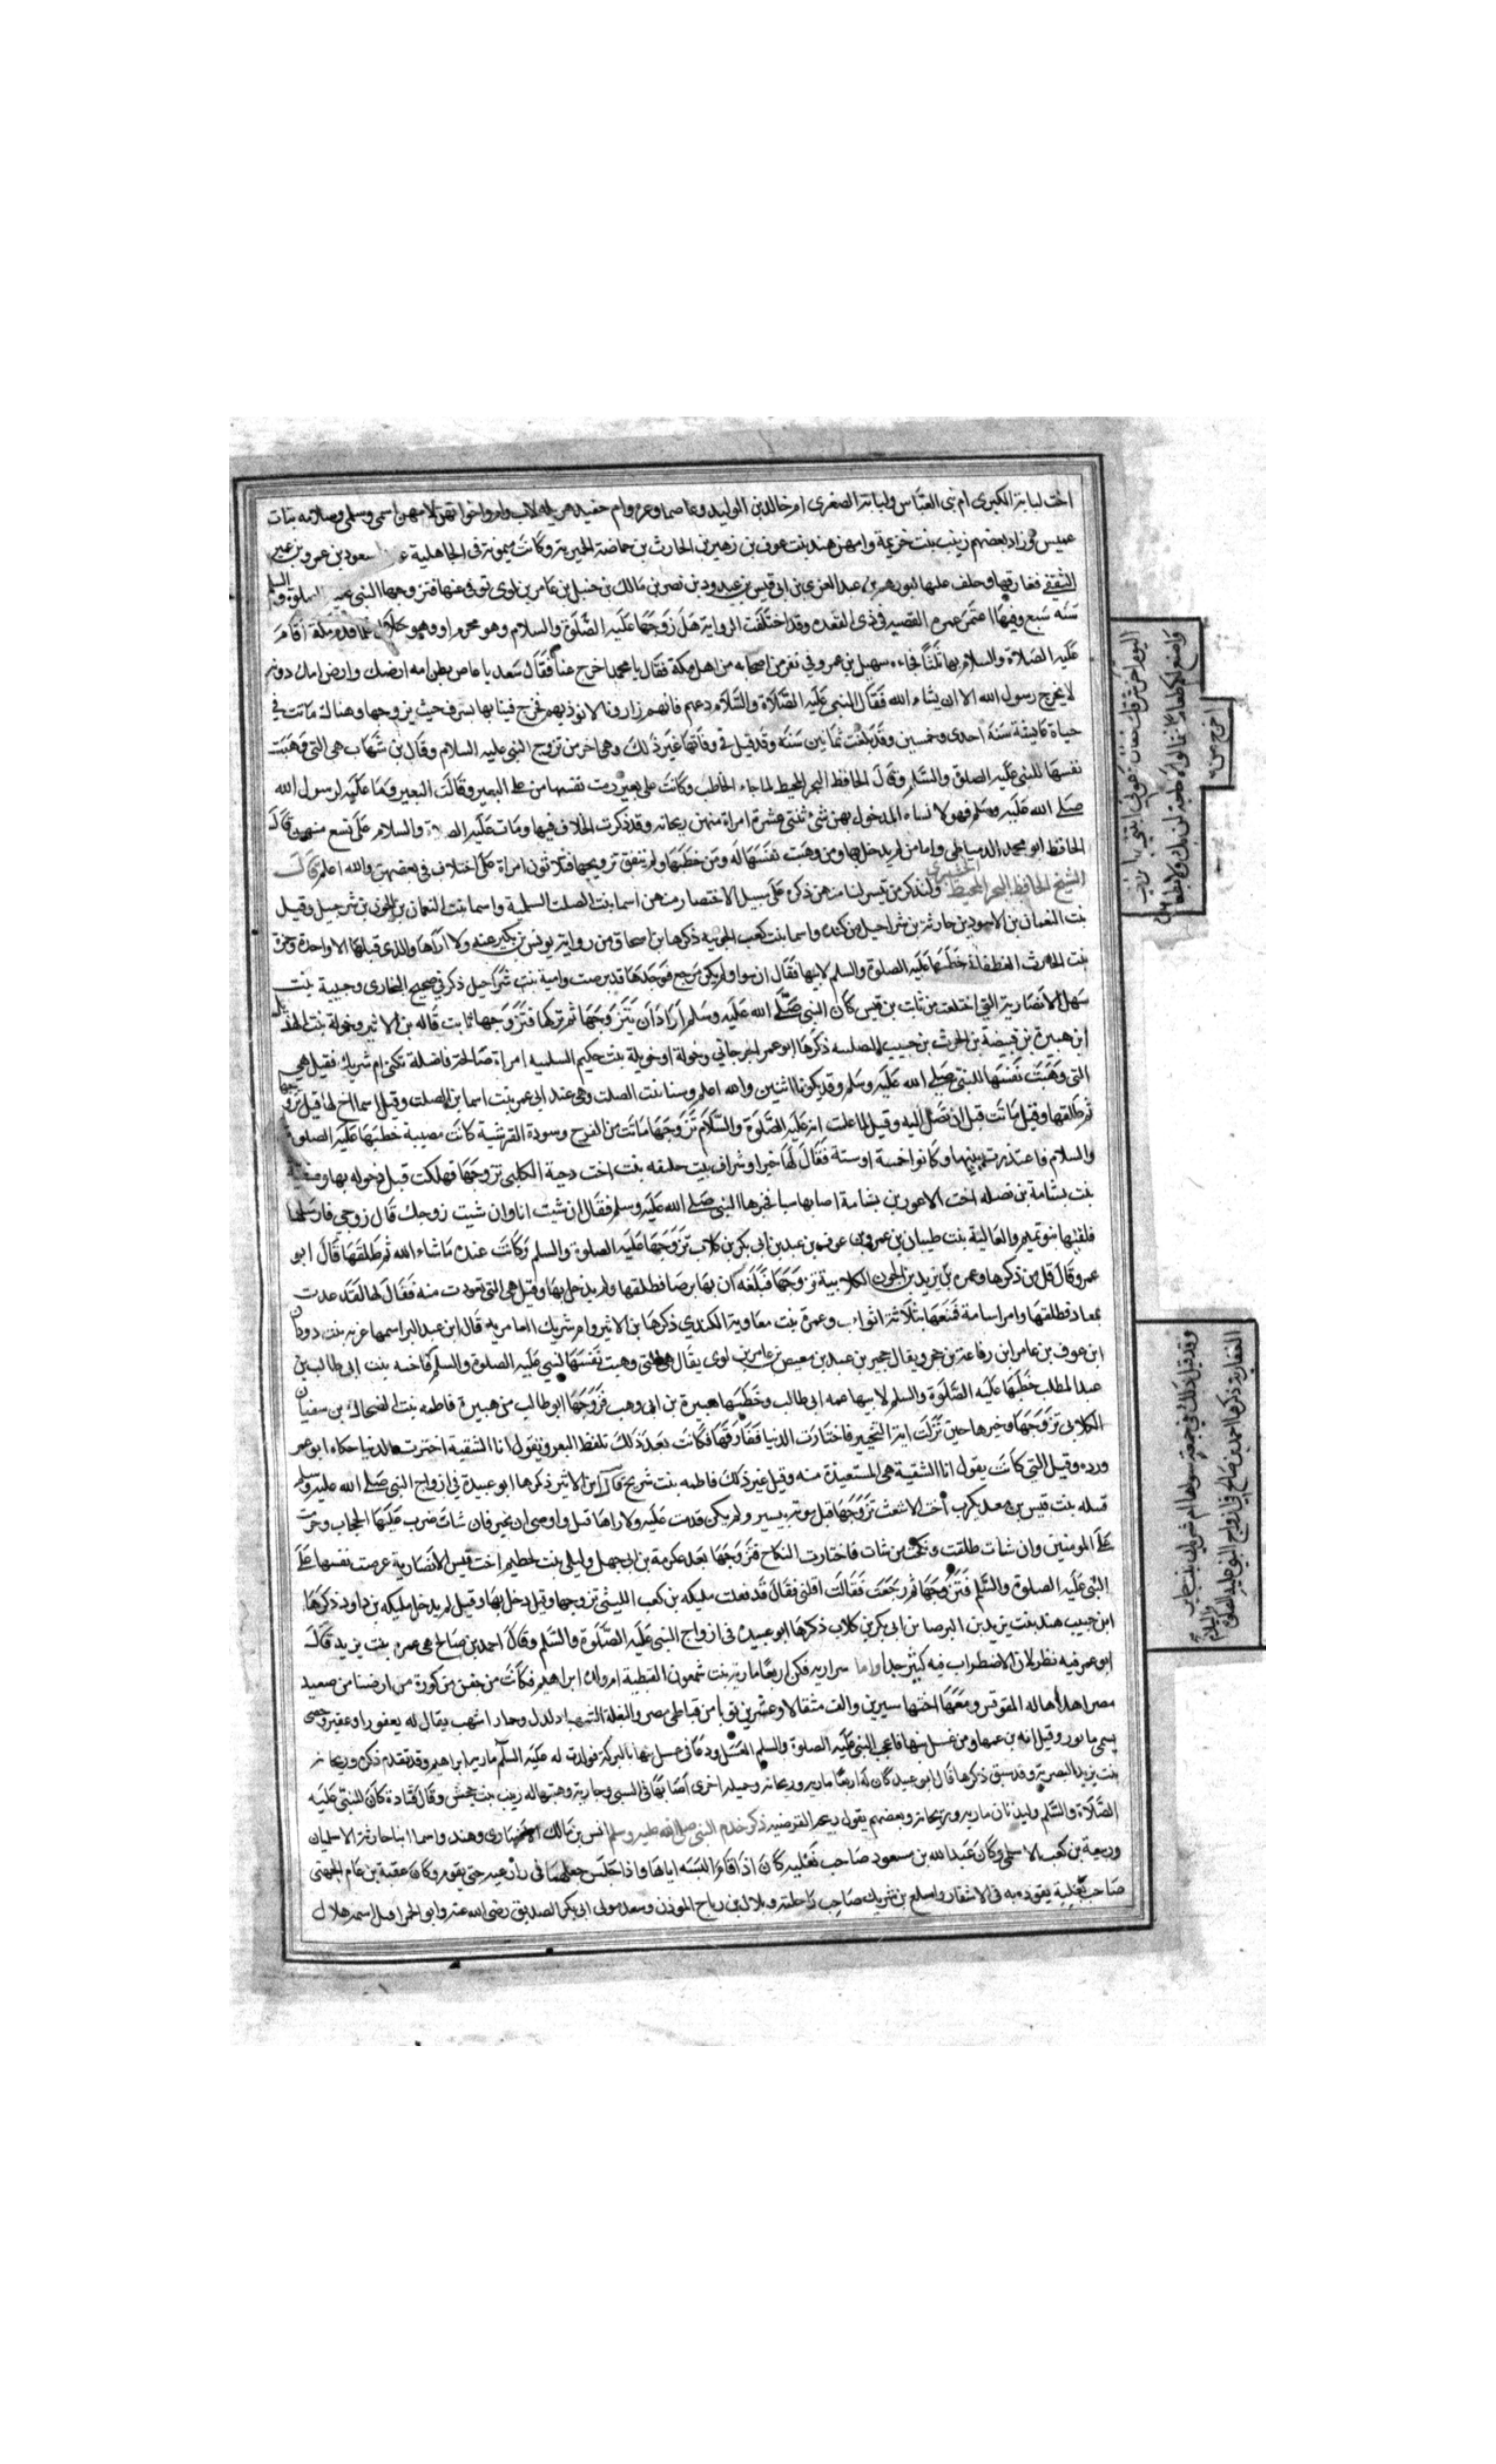 اخت لبابة الكبرى ام بنى العباس ولبابة الصغرى ام خالد بن الوليد وعاصما وعزه وام حفيد هزيله لاب وام واخواتهن لامهن اسمى وسلمى وسلامه بنات
عميس وزاد بعضهم زينب بنت خزيمة وامهن هند بنت عوف بن زهير بن الحارث بن حماضة الحميرية وكانت ميمونة فى الجاهلية مسعود بن عمرو بن عمير
الثقفى ففارقها وخلف عليها ابو رهم بن عبد العزى بن ابى قيس بن عبد ود بن نصر بن مالك بن حنبل بن عامر بن لوى توفى عنها فتزوجها النبى عليه الصلوة والسلم
سنه سبع وفيها اعتمر عمره القضيه فى ذى القعده وقد اختلفت الرواية هل زوجها عليه الصلوة والسلام وهو محرم او وهو حلال فلما قدم مكة اقام
عليه الصلاة والسلام بها ثلاثا فجاءه سهيل بن عمرو فى نفر من اصحابه من اهل مكة فقال يا محمد اخرج عنا فقال سعد يا عاص بظر امه ارضك وارض امك دونه
لا يخرج رسول الله الا ان يشاء الله فقال النبى عليه الصلاة والسلام دعهم فانهم زارونا لا نوذيهم فخرج فبنا بها بسرف حيث تزوجها وهناك ماتت فى
حياة عايشة سنة احدى وخمسين وقد بلغت ثمانين سنة وقد قيل فى وفاتها غير ذلك وهى اخر من تزوج النبى عليه السلام وقال بن شهاب هى التى وهبت
نفسها للنبى عليه الصلوة والسلم وقال الحافظ البحر المحيط لما جاء الخاطب وكانت على بعير رمت نفسها من على البعير وقالت البعير وما عليه لرسول الله
صلى الله عليه وسلم فهولا نساءه المدخول بهن شى ثنتى عشرة امراة منهن ريحانة وقد ذكرت الخلاف فيها ومات عليه الصلوة والسلام على تسع منهن قال
الحافظ ابو محمد الدمياطى واما من لم يدخل بها ومن وهبت نفسها له ومن خطبها ولم يتفق تزويجها فثلاثون امراة على اختلاف فى بعضهن والله اعلم قال
الشيخ الحافظ البحر المحيط ولنذكر من تيسر لنا منهن ذكره على سبيل الاختصار منهن اسما بنت الصلت السلمية واسما بنت النعمان بن الجون بن شرحبيل وقيل
بنت النعمان بن الاسود بن حارثة بن شراحيل من كنده واسما بنت كعب الجونيه ذكرها بن اسحاق من رواية يونس بن بكير عنه ولا اراها والذى قبلها الا واحدة وجمرة
بنت الحرث الغطفانية خطبها عليه الصلوة والسلم لابيها فقال ان بها سوا ولم يكن فرجع فوجدها قد برصت وامية بنت شراحيل ذكر فى صحيح البخارى وحبيبة بنت
سهل الانصارية التى اختلعت من ثابت بن قيس كان النبى صلى الله عليه وسلم اراد ان يتزوجها ثم تركها فتزوجها ثابت قاله بن الاثير وخولة بنت الهذيل
ابن هبيرة بن قبيصة بن الحرث بن حبيب ذكرها ابو عمر الجرجانى وخولة او خويلة بنت حكيم السلميه امراة صالحة فاضلة تكنى ام شريك فقيل هى
التى وهبت نفسها للنبى صلى الله عليه وسلم وقد يكونا اثنين والله اعلم وسنا بنت الصلت وهى عند ابى عمر بنت اسما بن الصلت وقيل اسما اخ لها قيل تزوجها
ثم طلقها وقيل ماتت قبل ان تصل اليه وقيل لما علمت انه عليه الصلوة والسلام تزوجها ماتت من الفرح وسودة القرشية كانت مصيبة خطبها عليه الصلوة
والسلام فاعتذرت ببنيها وكانوا خمسة او ستة فقال لها خيرا وشراف بنت خليفه بنت اخت دحية الكلبى تزوجها فهلكت قبل دخوله بها وصفية
بنت بشامة بن نضله اخت الاعور بن بشامة اصابها سبا فخيرها النبى صلى الله عليه وسلم فقال ان شيت انا وان شيت زوجك قال زوجى فارسلها
فلعنها بنو تميم والعالية بنت ظبيان بن عمرو بن عوف بن عبد بن ابى بكر بن كلاب تزوجها عليه الصلوة والسلم وكانت عنده ماشاء الله ثم طلقها قال ابو
عمر وقال قل من ذكرها وعمره بن يزيد بن الجون الكلابية تزوجها فبلغه ان بها برصا فطلقها ولم يدخل بها وقيل هى التى تعوذت منه فقال لها لقد عذت
بمعاذ فطلقها وامر اسامة فمتعها بثلاثة اثواب وعمرة بنت معاوية الكندى ذكرها بن الاثير وام شريك العامريه قال ابن عبد البر اسمها غزيه بنت دودان
ابن عوف بن عامر ابن رفاعة بن جحر ويقال جحير بن عبد بن معيص بن عامر بن لوى يقال هى التى وهبت نفسها لنبى عليه الصلوة والسلم فاخته بنت ابى طالب بن
عبد المطلب خطبها عليه الصلوة والسلم لابيها عمه ابى طالب وخطبها هبيرة بن ابى وهب فزوجها ابو طالب من هبيرة فاطمه بنت الضحاك بن سفيان
الكلابى تزوجها وخيرها حين نزلت اية التخيير فاختارت الدنيا ففارقها فكانت بعد ذلك تلفظ البعر وتقول انا الشقية اخترت الدنيا حكاه ابو عمر
ورده وقيل التى كانت يقول انا الشقية هى المستعيذة منه وقيل غير ذلك فاطمه بنت شريح قال ابن الاثير ذكرها ابو عبيدة فى ازواج النبى صلى الله عليه وسلم
قتيله بنت قيس بن معد يكرب اخت الاشعث تزوجها قبل موته بيسير ولم يكن قدمت عليه ولا راها قبل واوصى ان تخير فان شات ضرب عليها الحجاب وحرمت
على المومنين وان شات طلقت ونكحت من شات فاختارت النكاح فتزوجها بعد عكرمة بن ابى جهل وليلى بنت خطيم اخت قيس الانصارية عرضت نفسها على
النبى عليه الصلوة والسلم فتزوجها ثم رجعت فقالت اقلنى فقال قد فعلت مليكه بن كعب الليثى تزوجها وقيل دخل بها وقيل لم يدخل مليكه بن داود ذكرها
ابن حبيب هند بنت يزيد بن البرصا بن ابى بكر بن كلاب ذكرها ابو عبيده فى ازواج النبى عليه الصلوة والسلم وقال احمد بن صالح هى عمره بنت يزيد قال
ابو عمر فيه نظر لان الاضطراب فيه كبير جدا واما سراريه فكن اربعا ماريه بنت شمعون القبطية ام ولده ابراهيم فكانت من حفن من كورة من ارضنا من صعيد
مصر اهداها له المقوقس ومعها اختها سيرين والف مثقالا وعشرين ثوبا من قباطى مصر والبغلة الشهبا دلدل وحمار اشهب يقال له يعفور او عفير وخصى
يسمى مابور وقيل انه بن عمها ومن عسل بنها فاعجب النبى عليه الصلوة والسلم العسل ودعا فى عسل بنها بالبركة فولدت له عليه السلم ماريه ابراهيم وقد تقدم ذكره وريحانه
بنت يزيد النصرية وقد سبق ذكرها قال ابو عبيد كان له اربعا ماريه وريحانه وجميله اخرى اصابها فى السبى وجاريه وهبتها له زينب بنت جحش وقال قتادة كان للنبى عليه
الصلاة والسلم وليدتان ماريه وريحانه وبعضهم يقول ربيحه القرظيه ذكر خدم النبى صلى الله عليه وسلم انس بن مالك الانصارى وهند واسما ابنا حارثة الاسلميان
وربيعة بن كعب الاسلمى وكان عبد الله بن مسعود صاحب نعليه كان اذا قام البسه اياها واذا جلس جعلهما فى ذراعيه حتى يقوم وكان عقبة بن عامر الجهنى
صاحب بغلته يقود به فى الاسفار واسلع بن شريك صاحب راحلته وبلال بن رباح الموذن وسعد مولى ابى بكر الصديق رضى الله عنه وابو الحمرا قيل اسمه هلال
وقد قيل ذلك فى جماعة سواها ام شريك بنت جابر
الغفارية ذكرها احمد بن صالح فى ازواج النبى عليه الصلوة والسلام